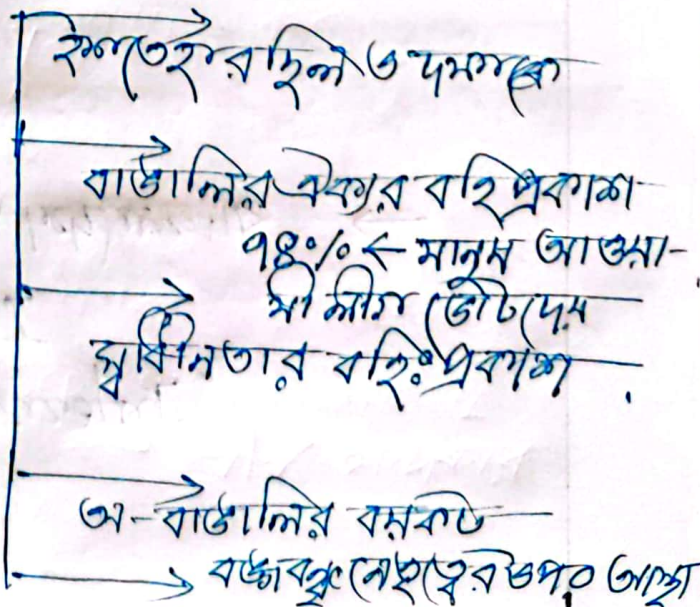 ইশতেহার ছিল ৬ দফাকে
বাঙালির ঐক্যর বহিপ্রকাশ
৭৪%← মানুষ আওয়া-
মী লীগ ভোট দেয়
স্বাধীনতার বহিঃপ্রকাশ
অ-বাঙালির বয়কট
বঙ্গবন্ধু নেতৃত্বের ওপর আস্থা